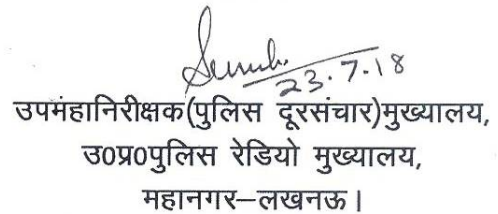 23.7.18
उपमंहानिरीक्षक(पुलिस दूरसंचार)मुख्यालय,
उ0प्र0पुलिस रेडियो मुख्यालय,
महानगर–लखनऊ।